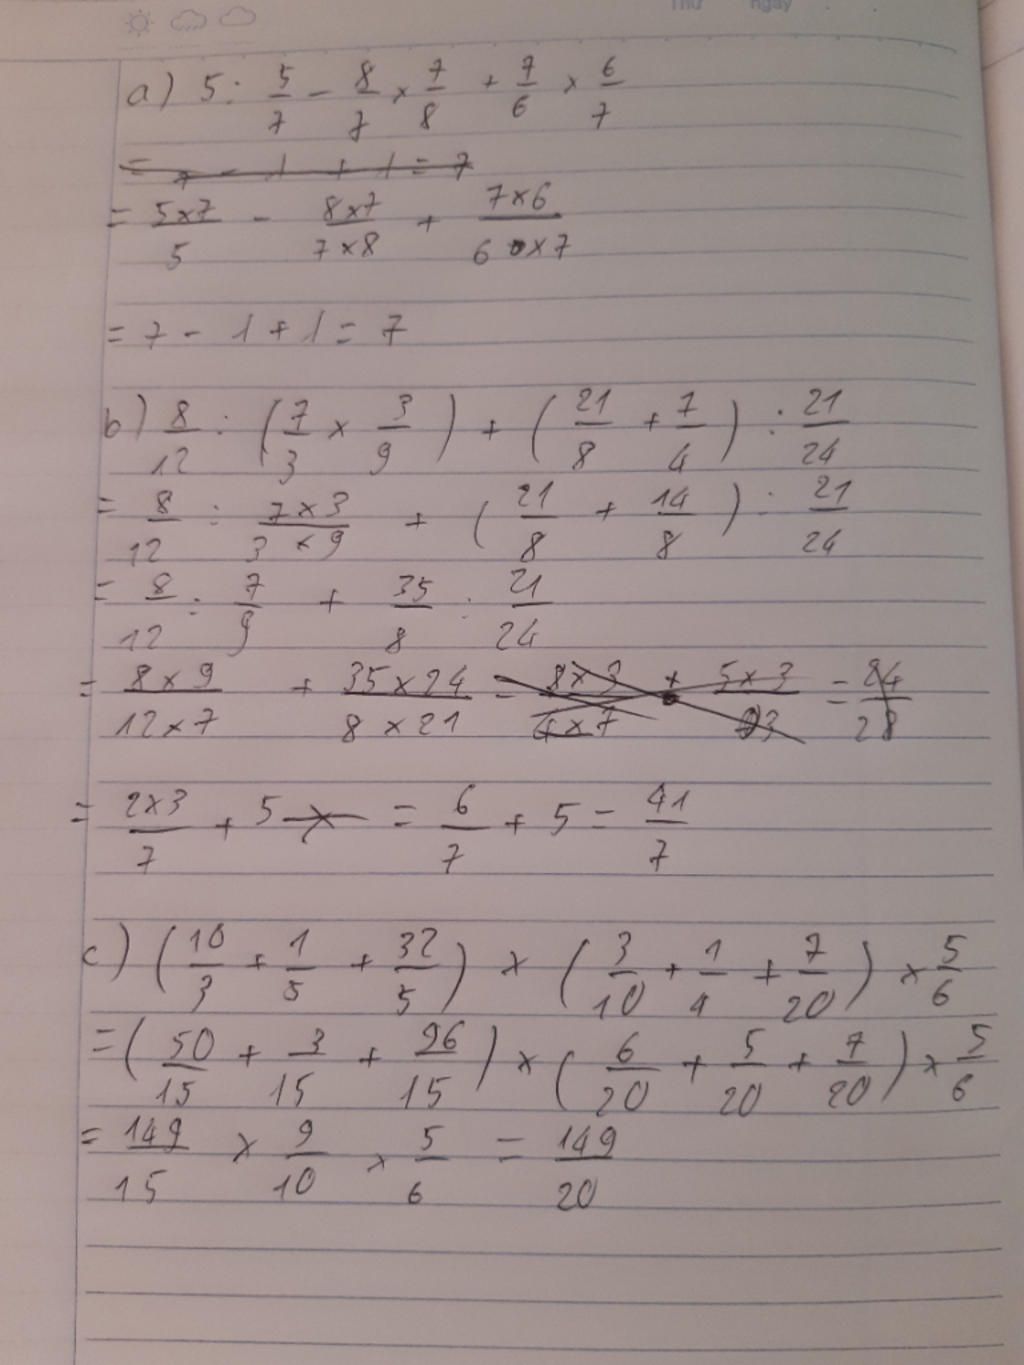 Thứ ngày
a) 5 : 5/7 - 8/7 × 7/8 + 7/6 × 6/7
= 7 - 1 + 1 = 7
= 5×7/5 - 8×7/7×8 + 7×6/6×7
= 7 - 1 + 1 = 7
b) 8/12 : (7/3 × 3/9) + (21/8 + 7/4) : 21/24
= 8/12 : 7×3/3×9 + (21/8 + 14/8) : 21/24
= 8/12 : 7/9 + 35/8 : 21/24
= 8×9/12×7 + 35×24/8×21 = 8×3/4×7 + 5×3/3 = 84/28
= 2×3/7 + 5 × = 6/7 + 5 = 41/7
c) (10/3 + 1/5 + 32/5) × (3/10 + 1/4 + 7/20) × 5/6
= (50/15 + 3/15 + 96/15) × (6/20 + 5/20 + 7/20) × 5/6
= 149/15 × 9/10 × 5/6 = 149/20